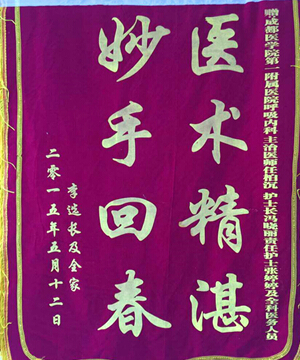 赠成都医学院第一附属医院呼吸内科主治医师任怕沉护士长冯晓丽责任护士张婷婷及全科医务人员
医术精湛
妙手回春
李选长及全家
二零一五年五月十二日